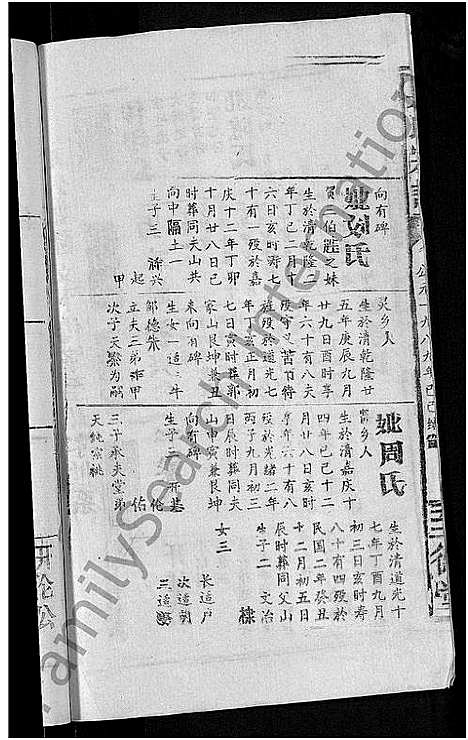 向有碑
妣刘氏
贺人伯胜之妹
生於清乾隆二
年丁巳二月十
六日亥时寿七
十有一殁於嘉
庆十二年丁卯
十月廿八日巳
时葬同夫山共
向中隔土一
生子三
兴
起
甲
灵乡人
生於清乾隆廿
五年庚辰九月
廿九日酉时享
年六十有八夫
殁守义苦百待
旌殁於道光七
年丁亥正月初
七日寅时葬郭
家山艮坤兼丑
未向有碑
生女一适
邹德朱
立夫三弟甲
次子天为嗣
妣周氏
贺乡人
生於清嘉庆十
四年己巳十二
月廿八日亥时
享年六十有八
殁於光绪二年
丙子九月初三
日辰时葬同夫
山申寅兼艮坤
向有碑
生子二
开基
佑
三子承夫堂弟
天纯宗祧
生於清道光十
七年丁酉九月
初三日亥时寿
八十有四殁於
民国二年癸丑
十二月初五日
辰时葬同父山
生子二
文治
棣
女三
长适卢
次适胡
三适
公元一九八九年己巳续修
三德堂
FamilySearch International